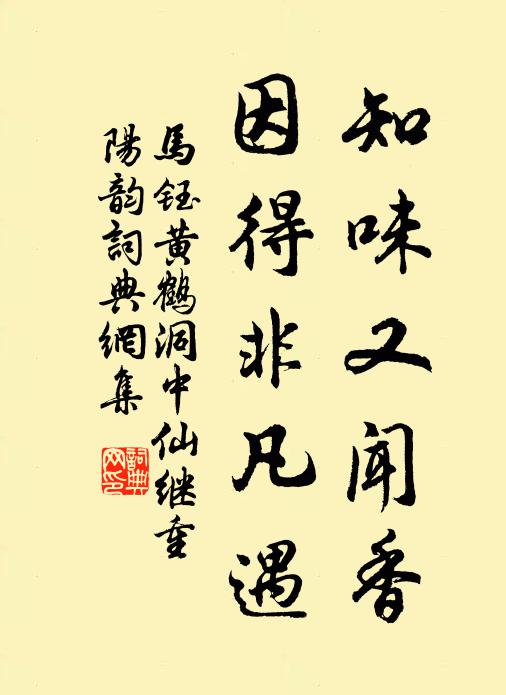 知味又闻香
因得非凡遇
馬鈺黄鶴洞中仙继重
陽韵詞典網集
詞典
网印